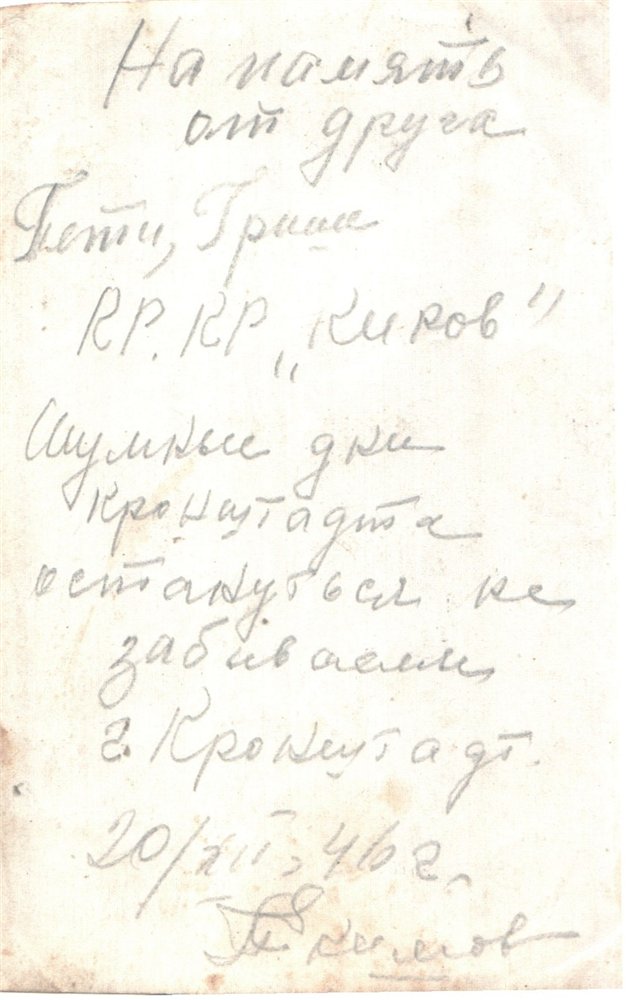 На память
от друга
Пети, Гриша
КР. КР „Киров"
Шумные дни
кронштадта
остануться не
забиваеми
г. Кронштадт.
20/XII, 46 г.
Екимов